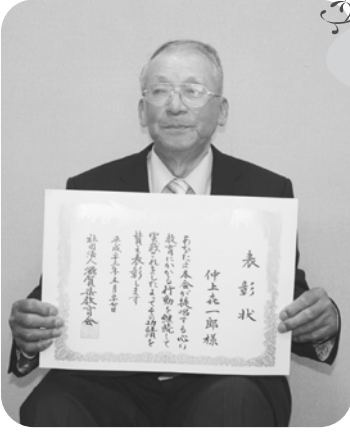 表彰状
仲上㐂一郎様
あなたは本会が提唱する心の
教育にかかる行動を継続して
実践されましたよってその功績を
讃え表彰します
平成 年 月 日
社団法人滋賀県教育会